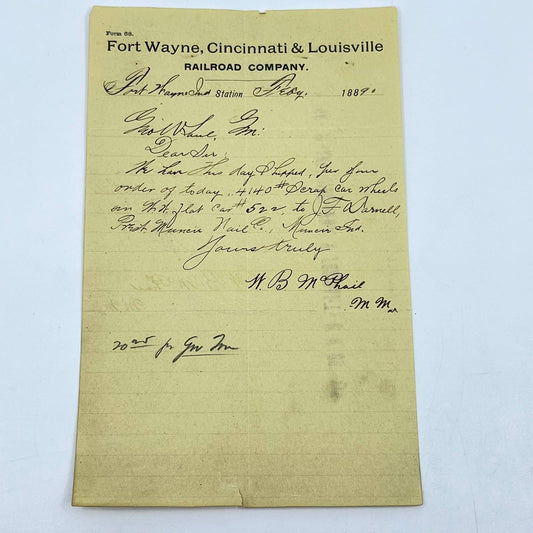 Form 68.
Fort Wayne, Cincinnati & Louisville
RAILROAD COMPANY.
Fort Wayne Ind Station 1889
Geo W G M:
Dear Sir:
We have this day Shipped, per your
order of today, 4140# Scrap car wheels
on flat car # 522, to J F Darnell,
Prest. Muncie Nail Co., Muncie Ind.
Yours truly
W. B. McPhail
M M